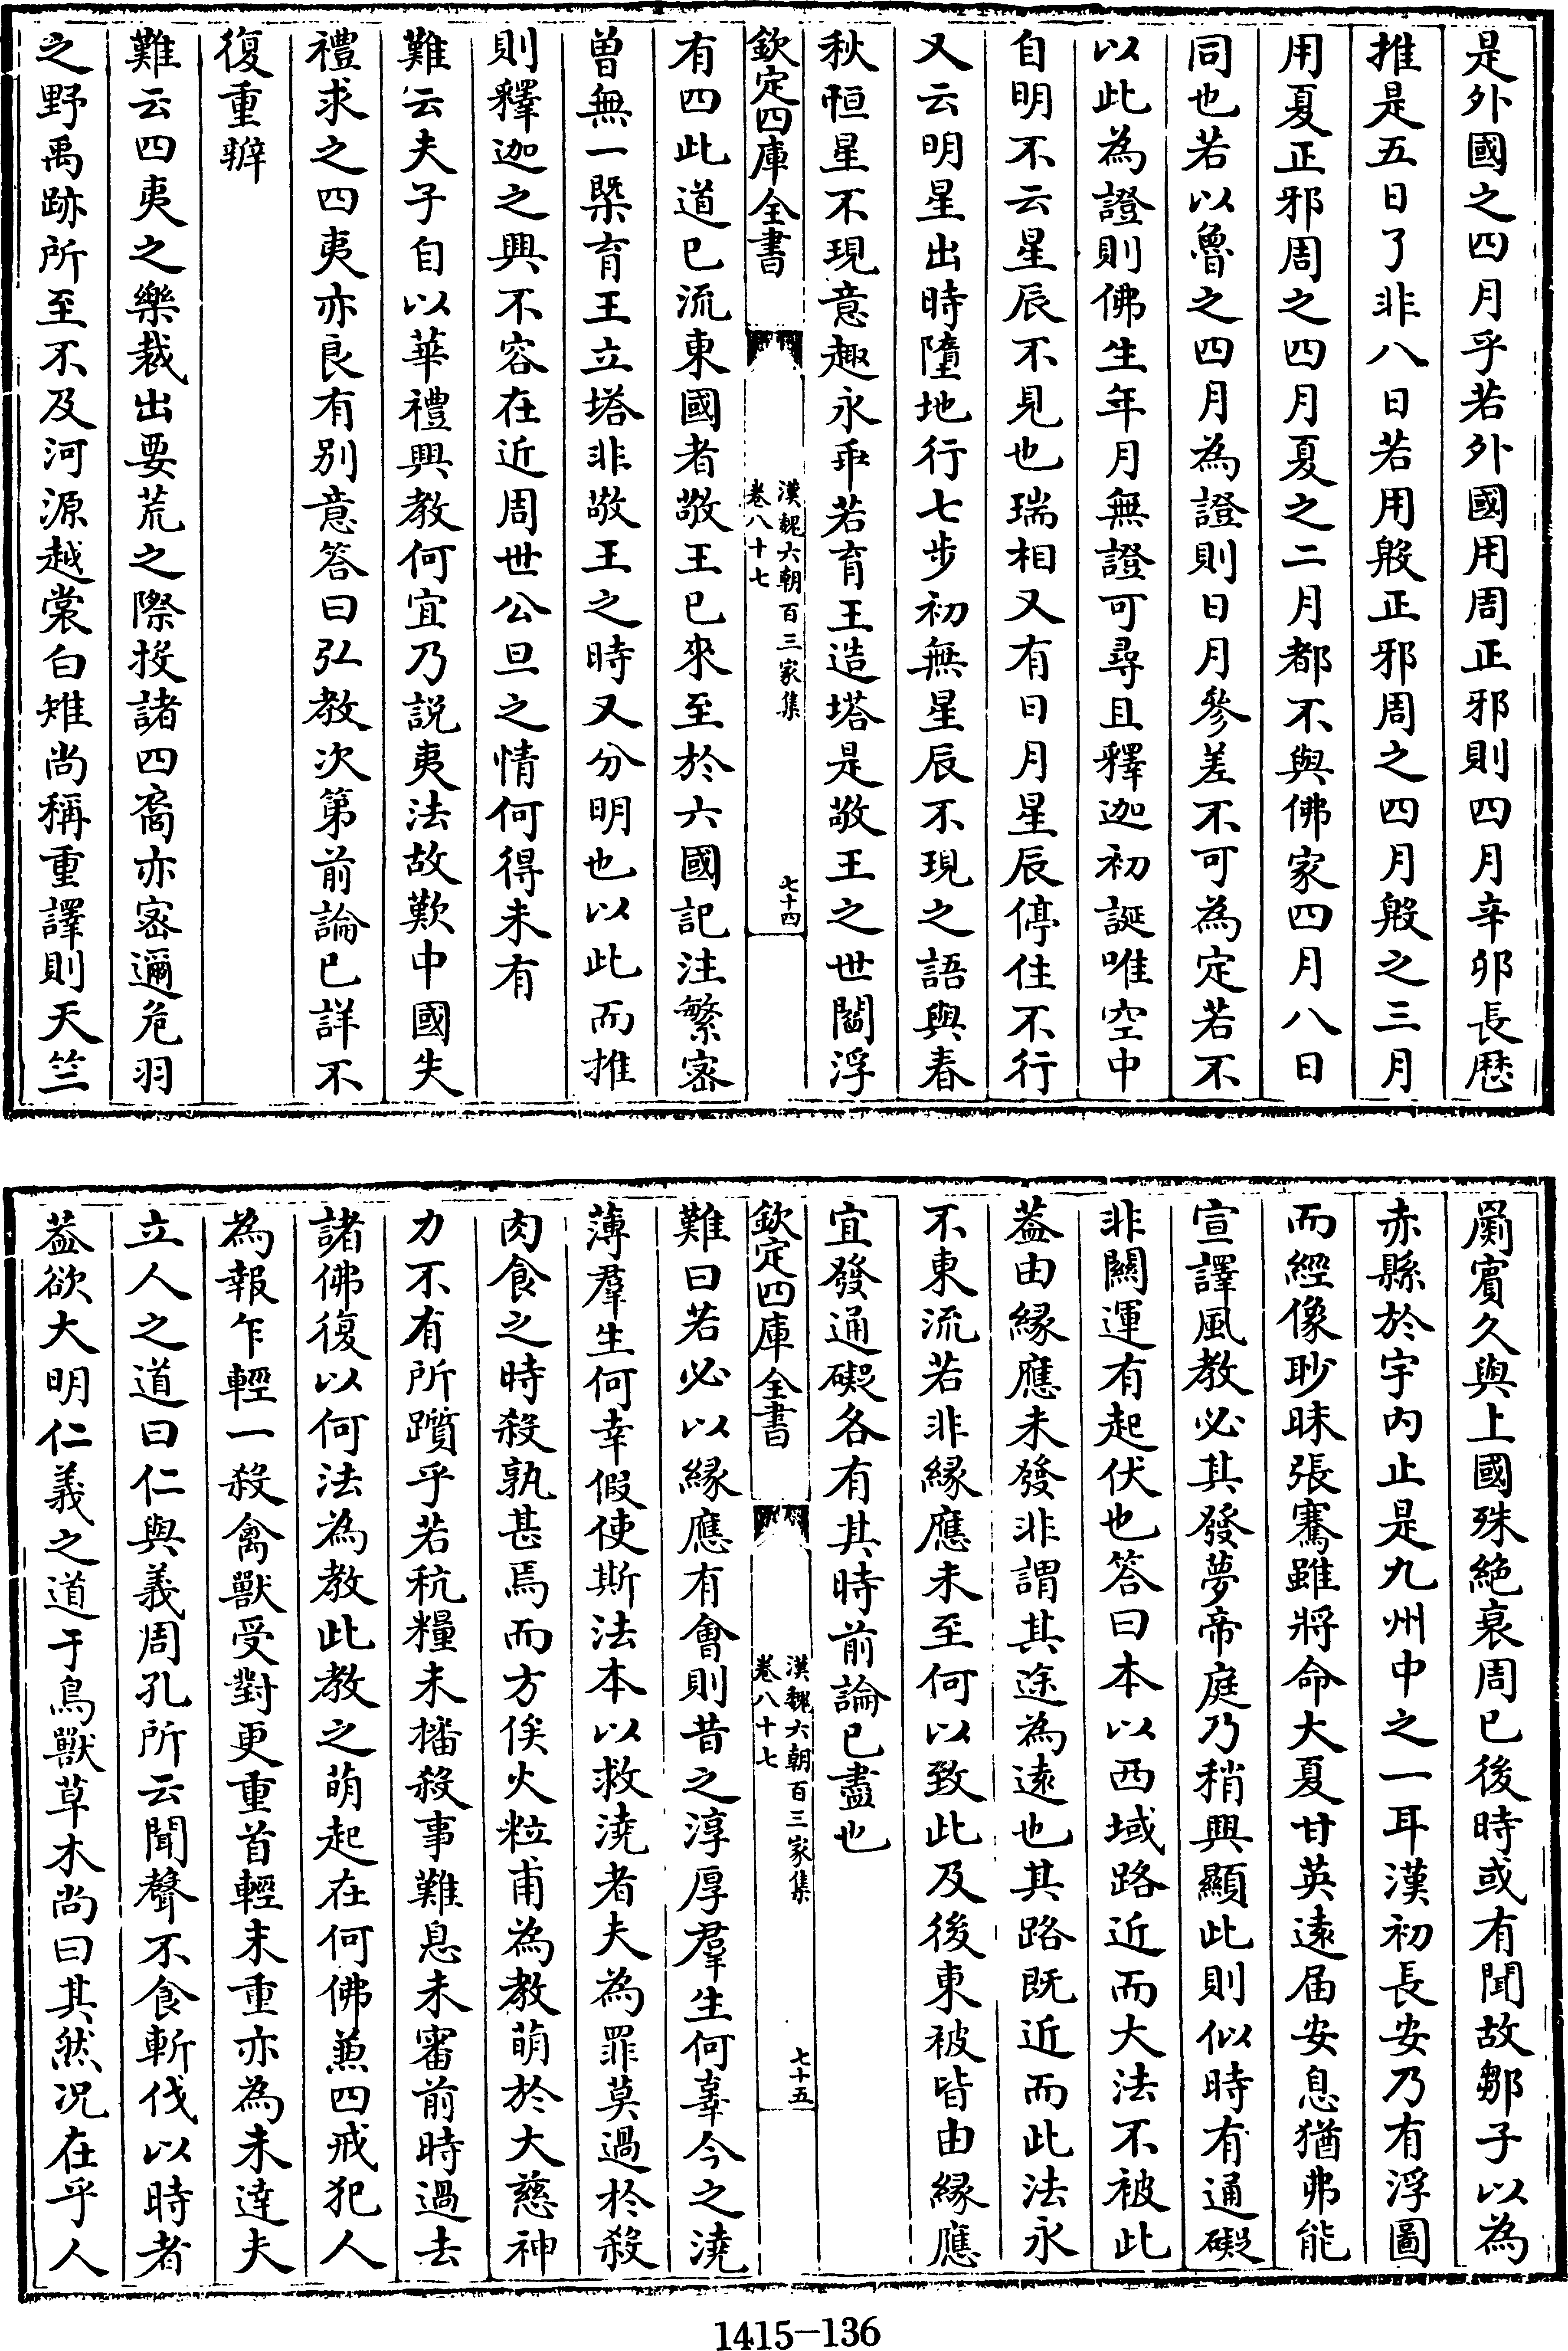 是外國之四月乎若外國用周正邪則四月辛卯長厯
推是五日了非八日若用殷正邪周之四月殷之三月
用夏正邪周之四月夏之二月都不與佛家四月八日
同也若以魯之四月為證則日月參差不可為定若不
以此為證則佛生年月無證可尋且釋迦初誕唯空中
自明不云星辰不見也瑞相又有日月星辰停住不行
又云明星出時墮地行七步初無星辰不現之語與春
秋恒星不現意趣永乖若育王造塔是敬王之世閻浮
欽定四庫全書
漢魏六朝百三家集
卷八十七
七十四
有四此道已流東國者敬王已來至於六國記注繁宻
曾無一槩育王立塔非敬王之時又分明也以此而推
則釋迦之興不容在近周世公旦之情何得未有
難云夫子自以華禮興教何宜乃説夷法故歎中國失
禮求之四夷亦良有别意答曰弘教次第前論已詳不
復重辨
難云四夷之樂裁出要荒之際投諸四裔亦宻邇危羽
之野禹跡所至不及河源越裳白雉尚稱重譯則天竺
罽賓久與上國殊絶衰周已後時或有聞故鄒子以為
赤縣於宇内止是九州中之一耳漢初長安乃有浮圖
而經像眇昧張騫雖將命大夏甘英遠届安息猶弗能
宣譯風教必其發夢帝庭乃稍興顯此則似時有通礙
非關運有起伏也答曰本以西域路近而大法不被此
葢由縁應未發非謂其途為遠也其路既近而此法永
不東流若非縁應未至何以致此及後東被皆由縁應
宜發通礙各有其時前論已盡也
欽定四庫全書
漢魏六朝百三家集
卷八十七
七十五
難曰若必以縁應有會則昔之淳厚羣生何辜今之澆
薄羣生何幸假使斯法本以救澆者夫為罪莫過於殺
肉食之時殺孰甚焉而方俟火粒甫為教萌於大慈神
力不有所躓乎若秔糧未播殺事難息未審前時過去
諸佛復以何法為教此教之萌起在何佛兼四戒犯人
為報乍輕一殺禽獸受對更重首輕末重亦為未達夫
立人之道曰仁與義周孔所云聞聲不食斬伐以時者
葢欲大明仁義之道于鳥獸草木尚曰其然况在乎人
1415-136